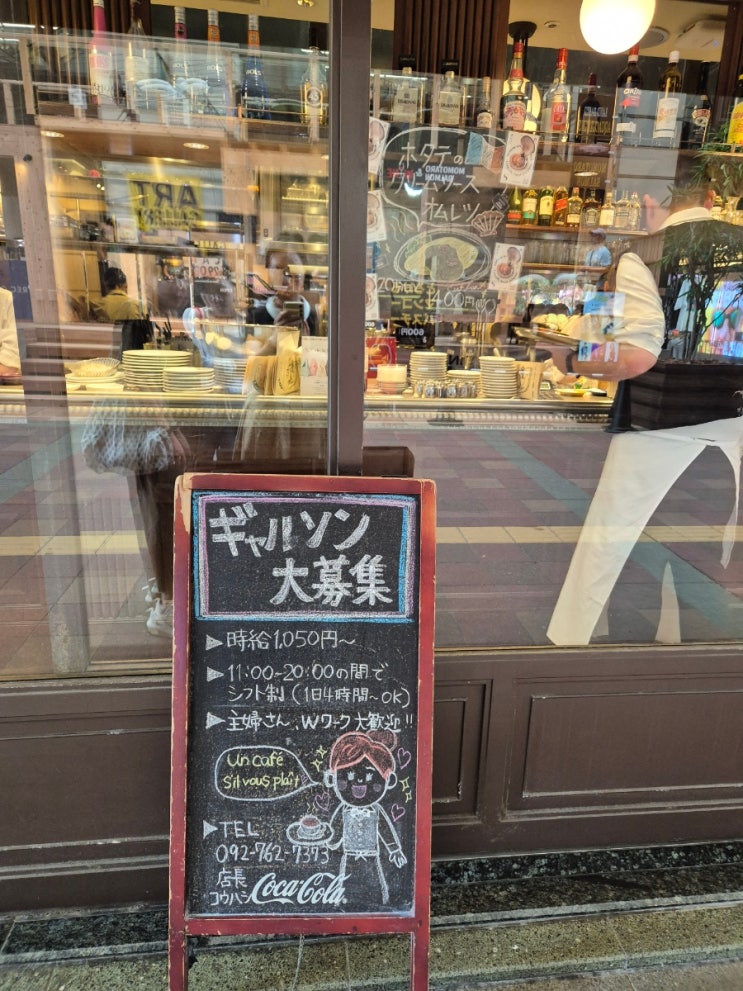 ホタテの
クリームソース
オムレツ
MOMOTARO
ART
600円
ギャルソン
大募集
▶時給1,050円〜
▶11:00~20:00の間で
シフト制(1日4時間~OK)
▶主婦さん、Wワーク大歓迎!!
Un café
s'il vous plaît
▶TEL
092-762-7373
店長
コウハシ
Coca-Cola